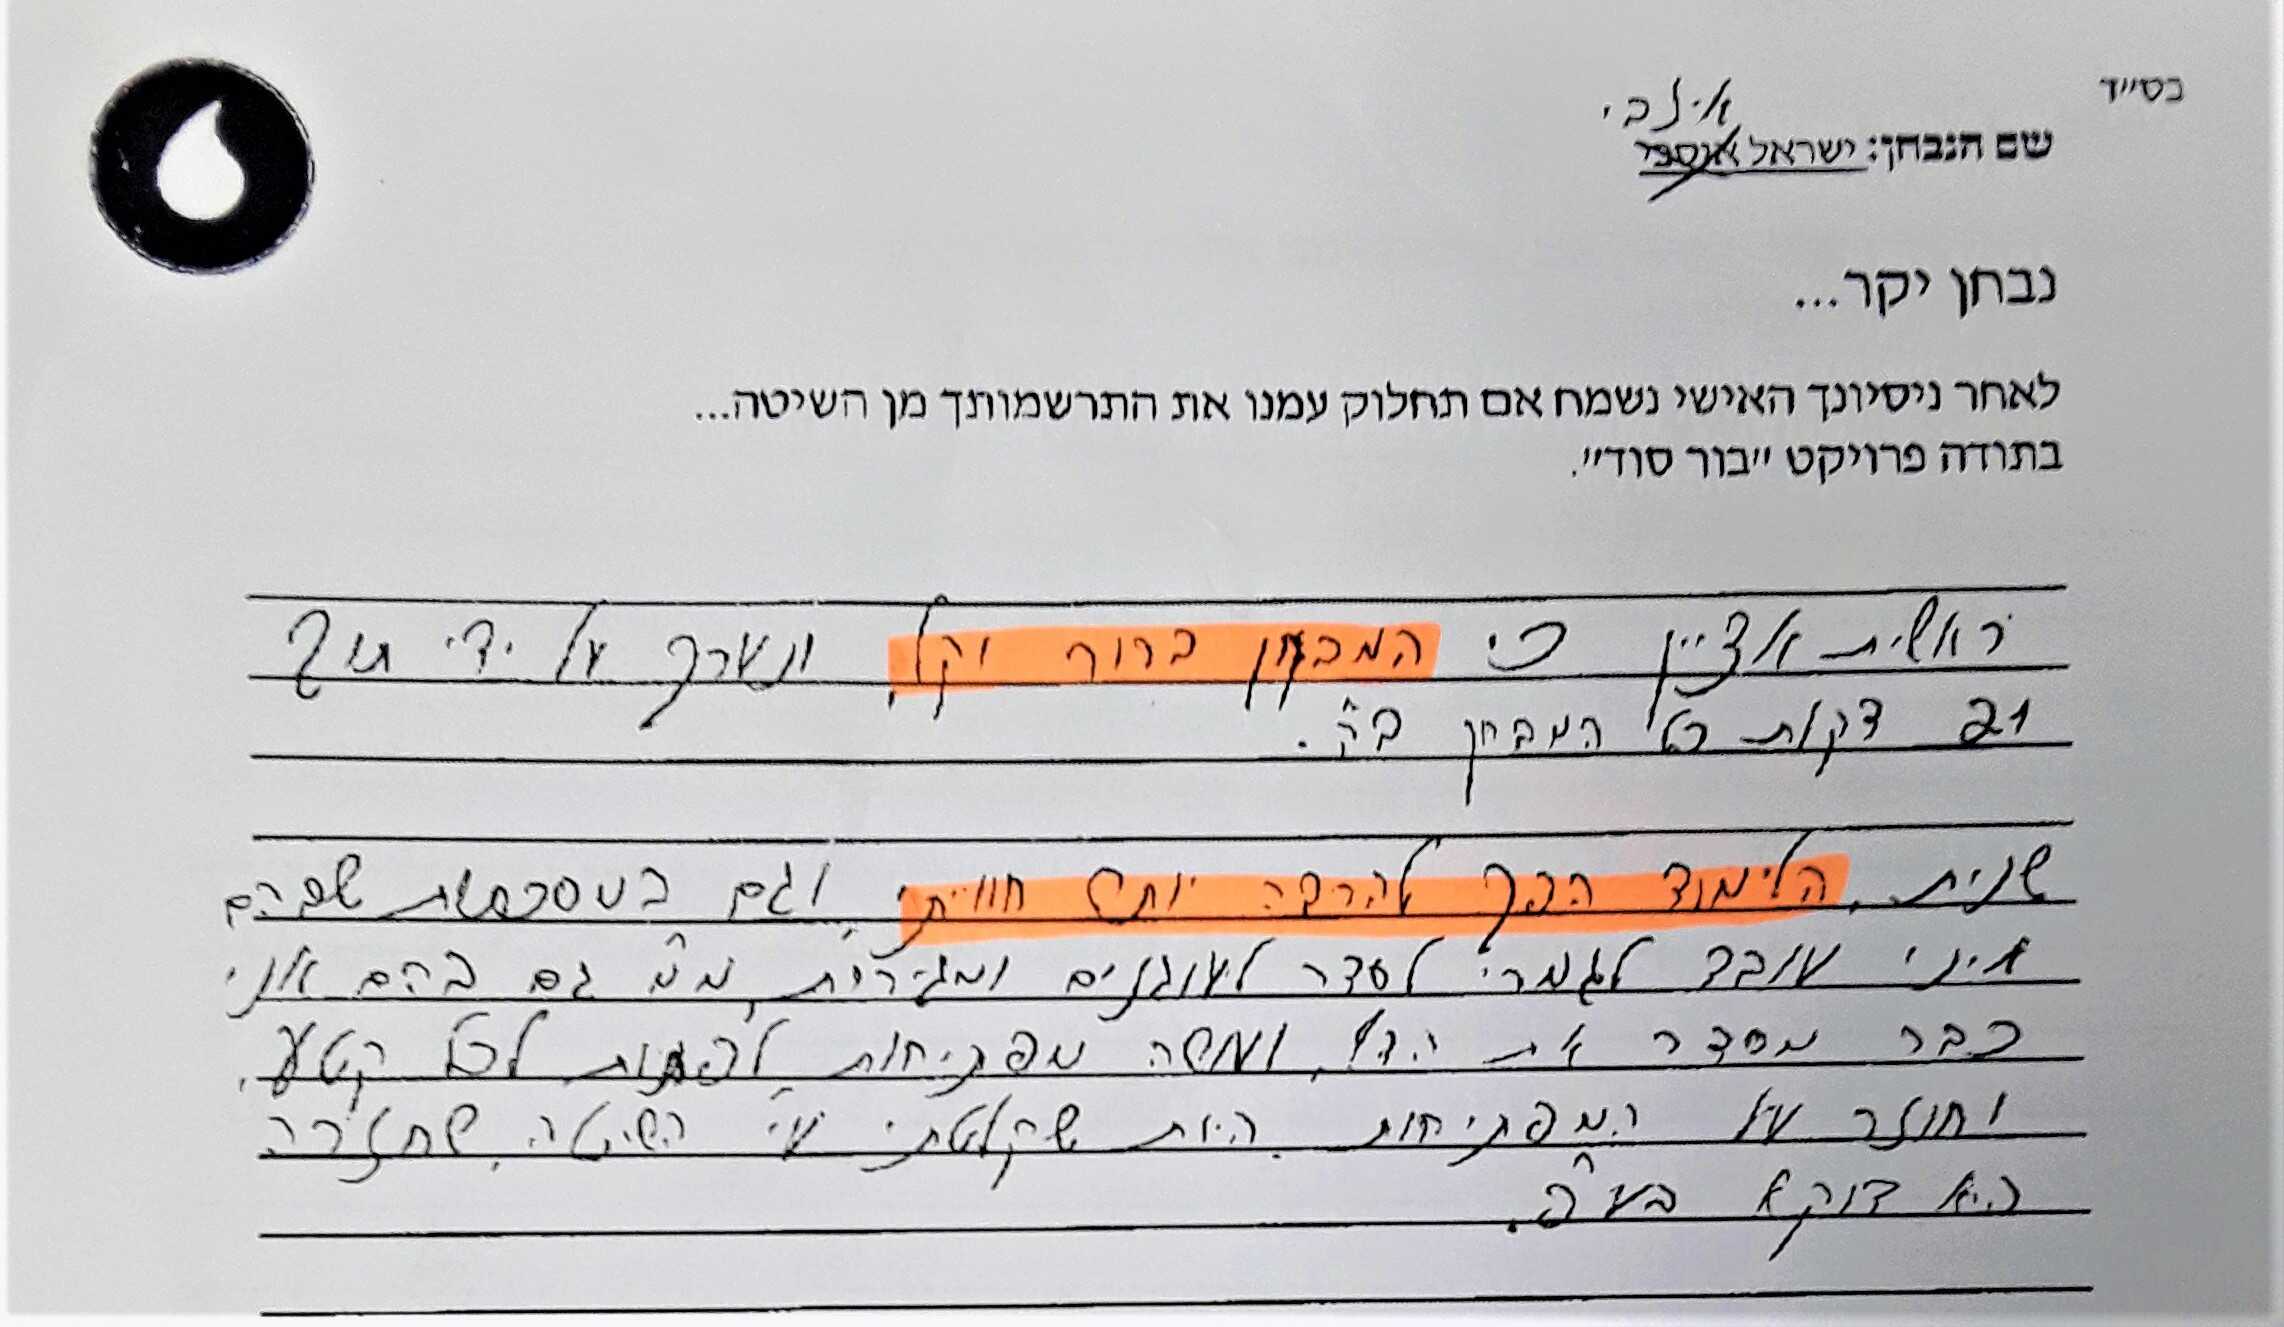 בסייד
אינבי
שם הנבחן: ישראל אנסבי
נבחן יקר...
לאחר ניסיונך האישי נשמח אם תחלוק עמנו את התרשמותך מן השיטה...
בתודה פרויקט ״בור סוד״.
ראשית אציין כי המבחן ברור וקל, ונערך על ידי תוך
12 דקות כל המבחן ב"ה.
שנית, הלימוד הפך להרבה יותר חווייתי, וגם במסכתות שבהם
איני עובד לגמרי לסדר לעוגנים ומגירות, מ"מ גם בהם אני
כבר מסדר את הדף, ועושה מפתיחות לפחות לכל קטע,
וחוזר על המפתיחות, היות שקלטתי ע"י השיטה, שחזרה
היא דוקא בע"פ.